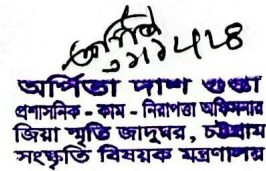 অর্পিতা দাশ গুপ্তা
প্রশাসনিক - কাম - নিরাপত্তা অফিসার
জিয়া স্মৃতি জাদুঘর, চট্টগ্রাম
সংস্কৃতি বিষয়ক মন্ত্রণালয়